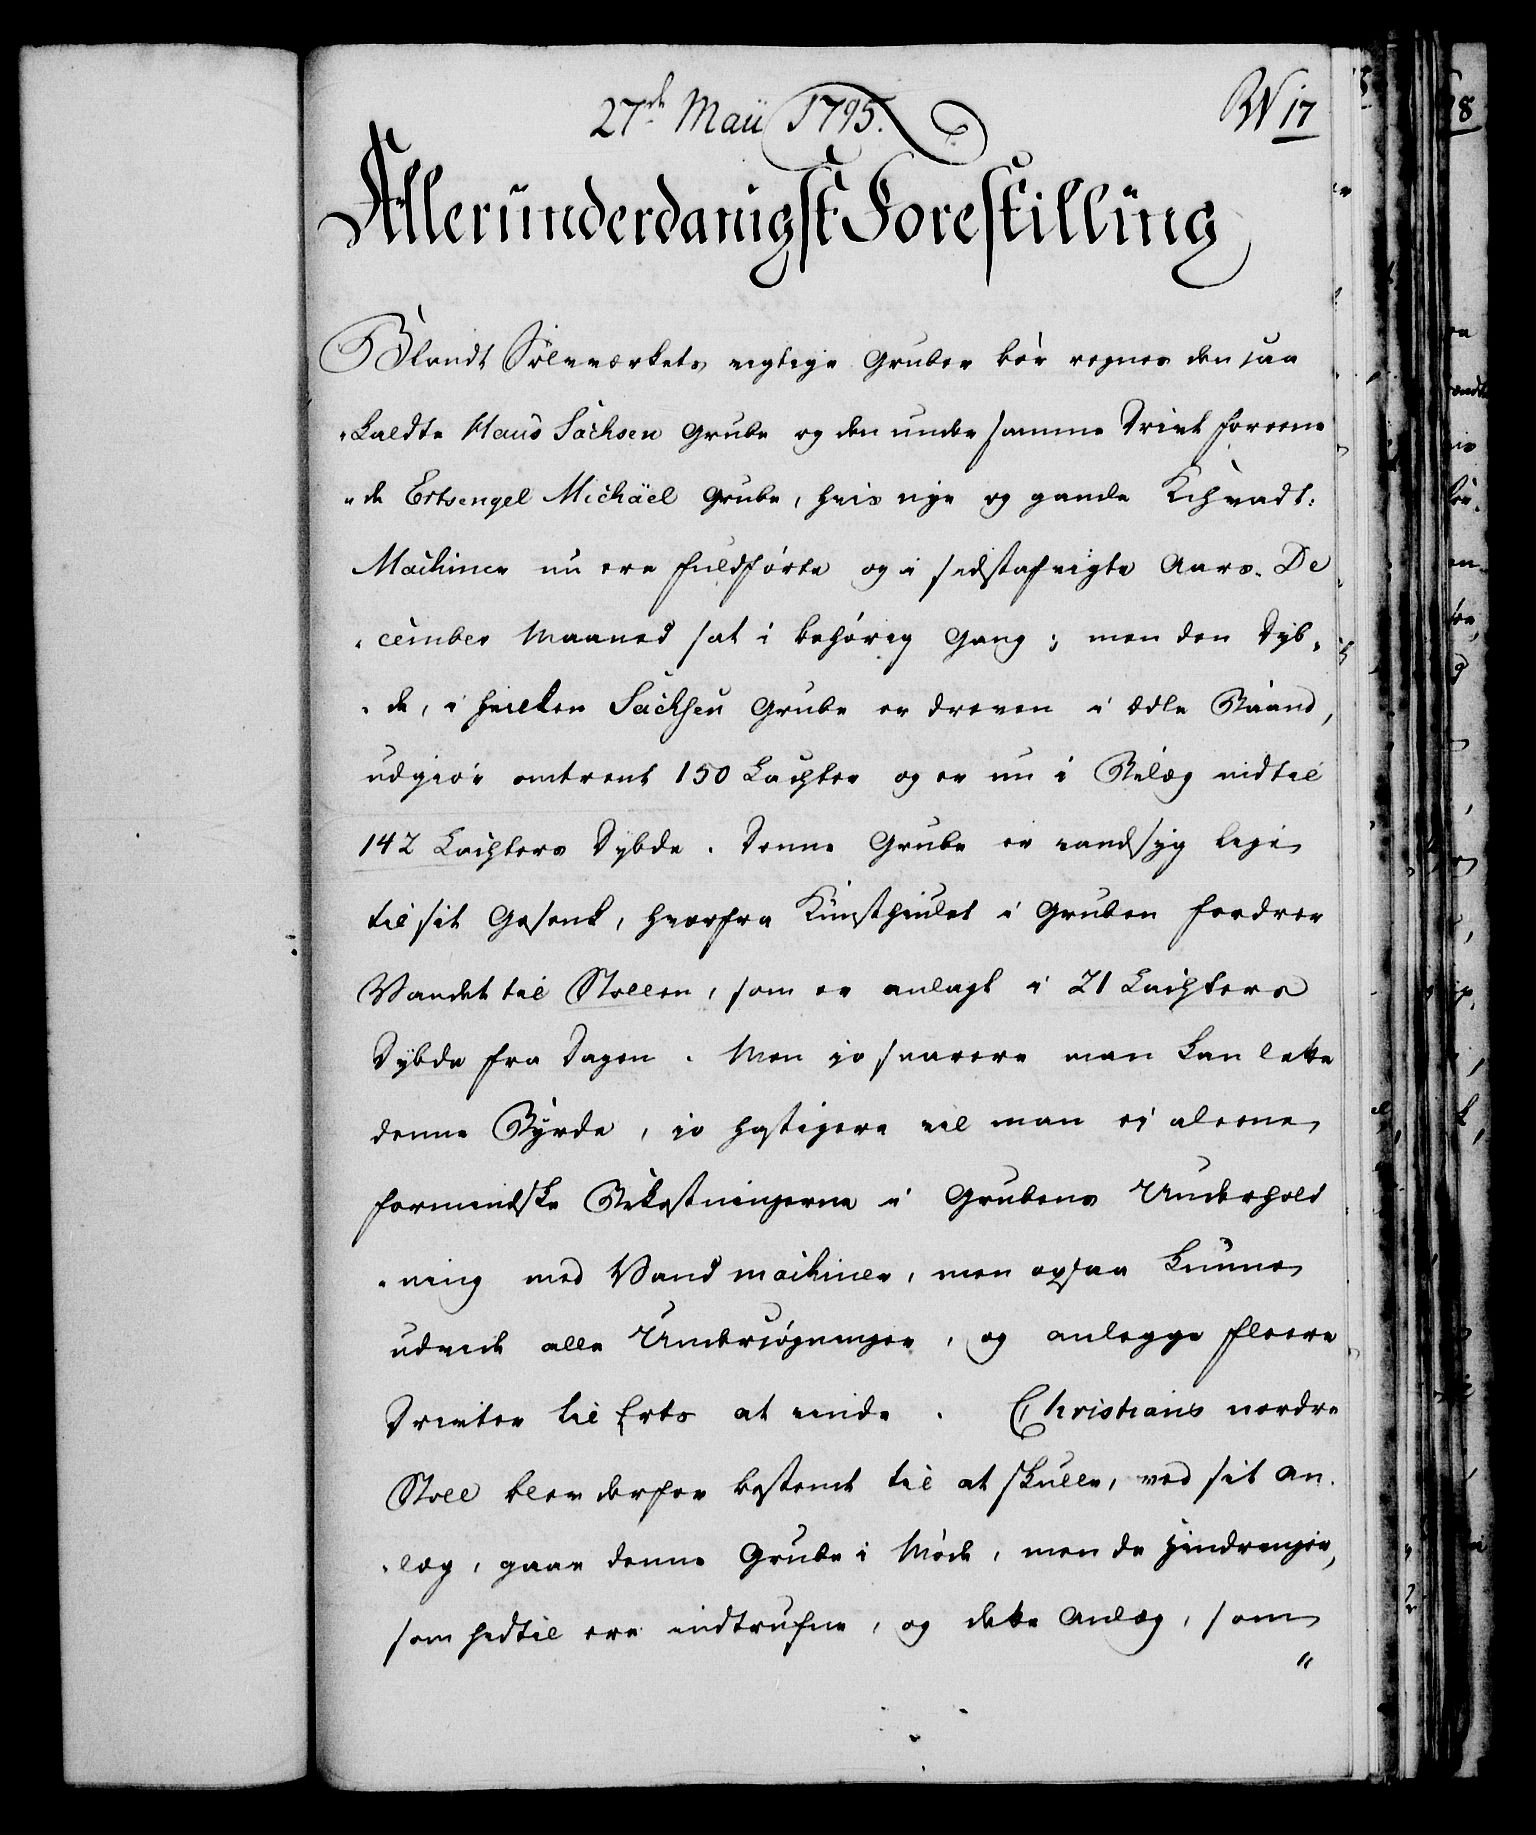 27de Maii 1795.
N 17
Allerunderdanigst Forestilling
Blandt Sölvværkets vigtige Gruber bör regnes den saa
kaldte Haus Sachsen Grube og den under samme Drivt foreene
de Ertsengel Michäel Grube, hvis nye og gamle
Machiner nu ere fuldförte og i sidstafvigte Aars De
cember Maaned sat i behörig Gang; men den Dyb,
de, i hvilken Sachsen Grube er dreven i ædle Baand,
udgiör omtrent 150 Lachter og er nu i Belæg indtil
142 Lachters Dybde. Denne Grube er vandsyg lige
til sit Gesenk, hvorfra Kunsthiulet i Gruben fordrer
Vandet til Stollen, som er anlagt i 21 Lachters
Dybde fra Dagen. Men jo snarere man kan lette
denne Byrde, jo hastigere vil man ei aleene
formindske Bekostningerne i Grubens Underhold
ning med Vandmachiner, men ogsaa kunne
udvide alle Undersögninger, og anlegge fleere
Drivter til Erts at vinde. Christians nordre
Stoll blev derfor bestemt til at skulle, ved sit An,
læg, gaae denne Grube i Möde, men de Hindringer,
som hidtil ere indtrufne, og dette Anlæg, som
"